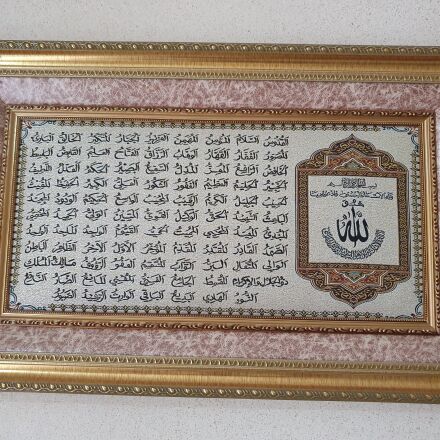 بسم الله الرحمن الرحيم
ولله الأسماء الحسنى فادعوه بها
الله
القدوس السلام المؤمن المهيمن العزيز الجبار المتكبر الخالق البارئ
المصور الغفار القهار الوهاب الرزاق الفتاح العليم القابض الباسط
الخافض الرافع المعز المذل السميع البصير الحكم العدل اللطيف
الخبير الحليم العظيم الغفور الشكور العلي الكبير الحفيظ المقيت
الحسيب الجليل الكريم الرقيب المجيب الواسع الحكيم الودود المجيد
الباعث الشهيد الحق الوكيل القوي المتين الولي الحميد المحصي
المبدئ المعيد المحيي المميت الحي القيوم الواجد الماجد الواحد
الصمد القادر المقتدر المقدم المؤخر الأول الآخر الظاهر الباطن
الوالي المتعال البر التواب المنتقم العفو الرؤوف مالك الملك
ذو الجلال والإكرام المقسط الجامع الغني المغني المانع الضار النافع
النور الهادي البديع الباقي الوارث الرشيد الصبور